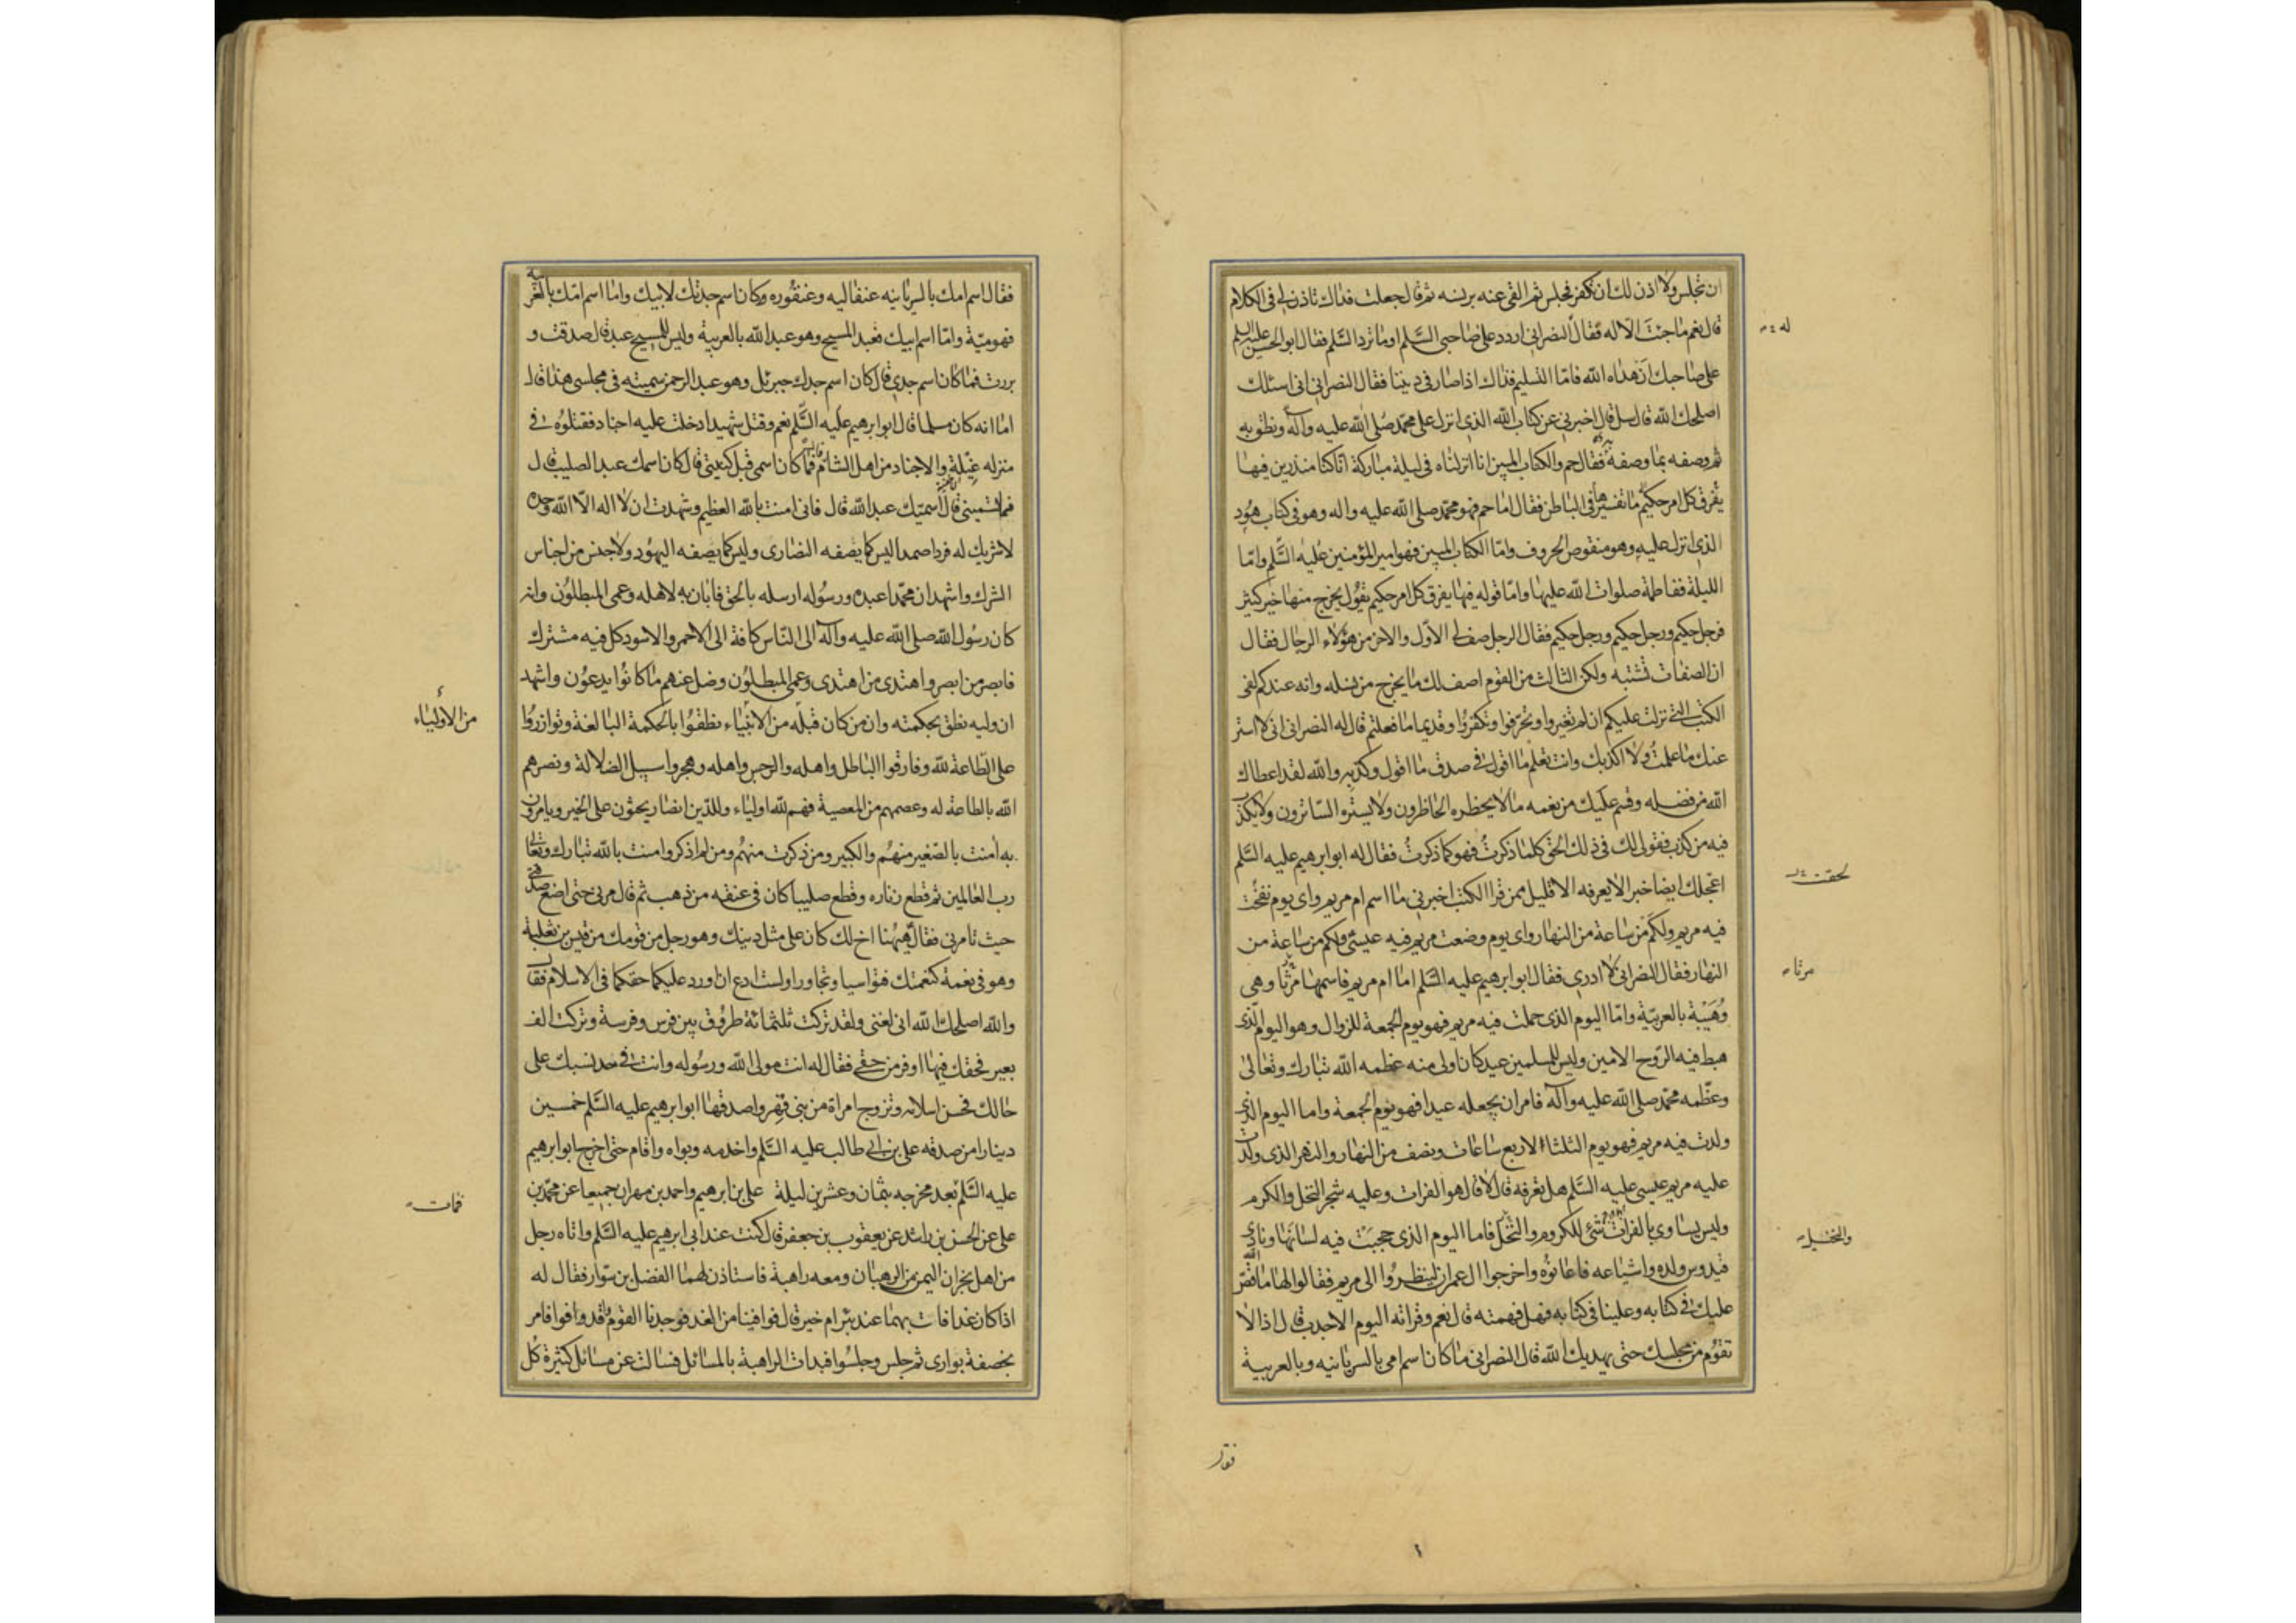 ان تجلس ولا اذن لك ان تكفر فجلس ثم القى عنه برنسه ثم قال جعلت فداك تاذن لى فى الكلام
قال نعم ما جئت الا له فقال النصرانى اردد على صاحبى السلم اوما ترد السلم فقال ابو الحسن عليه السلم
على صاحبك ان هداه الله فاما التسليم فذاك اذا صار فى ديننا فقال النصرانى انى اسئلك
اصلحك الله قال سل قال اخبرنى عن كتاب الله الذى انزل على محمد صلى الله عليه وآله ونطق به
ثم وصفه بما وصفه به فقال حم والكتاب المبين انا انزلناه فى ليلة مباركة انا كنا منذرين فيها
يفرق كل امر حكيم ما تفسيرها فى الباطن فقال اما حم فهو محمد صلى الله عليه واله وهو فى كتاب هود
الذى انزل عليه وهو منقوص الحروف واما الكتاب المبين فهو امير المؤمنين عليه السلم واما
الليلة ففاطمة صلوات الله عليها واما قوله فيها يفرق كل امر حكيم يقول يخرج منها خير كثير
فرجل حكيم ورجل حكيم ورجل حكيم فقال الرجل صف لى الاول والاخر من هؤلاء الرجال فقال
ان الصفات تشتبه ولكن الثالث من القوم اصف لك ما يخرج من نسله وانه عندكم لفى
الكتب التى نزلت عليكم ان لم تغيروا وتحرفوا وتكفروا وقديما ما فعلتم قال له النصرانى انى لا استر
عنك ما علمت ولا اكذبك وانت تعلم ما اقول فى صدق ما اقول وكذبه والله لقد اعطاك
الله من فضله وقسم عليك من نعمه ما لا يخطره الخاطرون ولا يستره الساترون ولا يكذب
فيه من كذب فقولى لك فى ذلك الحق كلما ذكرت فهو كما ذكرت فقال له ابو ابرهيم عليه السلم
اعجلك ايضا خبرا لا يعرفه الا قليل ممن قرا الكتب اخبرنى ما اسم ام مريم واى يوم نفخت
فيه مريم ولكم من ساعة من النهار واى يوم وضعت مريم فيه عيسى ولكم من ساعة من
النهار فقال النصرانى لا ادرى فقال ابو ابرهيم عليه السلم اما ام مريم فاسمها مرثا وهى
وهيبة بالعربية واما اليوم الذى حملت فيه مريم فهو يوم الجمعة للزوال وهو اليوم الذى
هبط فيه الروح الامين وليس للمسلمين عيد كان اولى منه عظمه الله تبارك وتعالى
وعظمه محمد صلى الله عليه وآله فامر ان يجعله عيدا فهو يوم الجمعة واما اليوم الذى
ولدت فيه مريم فهو يوم الثلثاء لاربع ساعات ونصف من النهار والنهر الذى ولدت
عليه مريم عيسى عليه السلم هل تعرفه قال لا قال هو الفرات وعليه شجر النخل والكرم
وليس يساوى بالفرات شئ للكروم والنخل فاما اليوم الذى حجبت فيه لسانها ونادى
قيدوس ولده واشياعه فاعانوه واخرجوا ال عمران لينظروا الى مريم فقالوا لها ما قص الله
عليك فى كتابه وعلينا فى كتابه فهل فهمته قال نعم وقراته اليوم الاحدث قال اذا لا
تقوم من مجلسك حتى يهديك الله قال النصرانى ما كان اسم امى بالسريانيه وبالعربية
له
لحقت
مرتا
والنخيل
فقال
فقال اسم امك بالسريانيه عنقاليه وعنقوره وكان اسم جدتك لابيك واما اسم امك بالعربيه
فهو ميّة واما اسم ابيك فعبد المسيح وهو عبد الله بالعربية وليس للمسيح عبد قال صدقت و
بررت فما كان اسم جدى قال كان اسم جدك جبرئل وهو عبد الرحمن سميته فى مجلسى هذا قال
اما انه كان مسلما قال ابو ابرهيم عليه السلم نعم وقتل شهيدا دخلت عليه اجناد فقتلوه فى
منزله غيلة والاجناد من اهل الشام قال فما كان اسمى قبل كنيتى قال كان اسمك عبد الصليب قال
فما تسمينى قال اسميك عبد الله قال فانى امنت بالله العظيم وشهدت ان لا اله الا الله وحده
لا شريك له فردا صمدا ليس كما يصفه النصارى وليس كما يصفه اليهود ولا جنس من اجناس
الشرك واشهد ان محمدا عبده ورسوله ارسله بالحق فابان به لاهله وعمى المبطلون وانه
كان رسول الله صلى الله عليه وآله الى الناس كافة الى الاحمر والاسود كل فيه مشترك
فابصر من ابصر واهتدى من اهتدى وعمى المبطلون وضل عنهم ما كانوا يدعون واشهد
ان وليه نطق بحكمته وان من كان قبله من الانبياء نطقوا بالحكمة البالغة وتوازروا
على الطاعة لله وفارقوا الباطل واهله والرجس واهله وهجروا سبيل الضلالة ونصرهم
الله بالطاعة له وعصمهم من المعصية فهم لله اولياء وللدين انصار يحثون على الخير ويامرون
به امنت بالصغير منهم والكبير ومن ذكرت منهم ومن لم اذكر وامنت بالله تبارك وتعالى
رب العالمين ثم قطع زناره وقطع صليبا كان فى عنقه من ذهب ثم قال مرنى حتى اضع صدقتى
حيث تامرنى فقال هيهنا اخ لك كان على مثل دينك وهو رجل من قومك من قيس بن ثعلبة
وهو فى نعمة كنعمتك فتواسيا وتجاورا ولست ادع ان اورد عليكما حقكما فى الاسلام فقال
والله اصلحك الله انى لغنى ولقد تركت ثلثمائة طروق بين فرس وفرسة وتركت الف
بعير فحقك فيها اوفر من حقى فقال له انت مولى الله ورسوله وانت فى حد نسبك على
حالك فحسن اسلامه وتزوج امراة من بنى فهر واصدقها ابو ابرهيم عليه السلم خمسين
دينارا من صدقه على بن ابى طالب عليه السلم واخدمه وبواه واقام حتى اخرج ابو ابرهيم
عليه السلم بعد مخرجه بثمان وعشرين ليلة على بن ابرهيم واحمد بن مهران جميعا عن محمد بن
على عن الحسن بن راشد عن يعقوب بن جعفر قال كنت عند ابى ابرهيم عليه السلم واتاه رجل
من اهل نجران اليمن من الرهبان ومعه راهبة فاستاذن لهما الفضل بن سوار فقال له
اذا كان غدا فات بهما عند بئر ام خير قال فوافينا من الغد فوجدنا القوم قد وافوا فامر
بخصفة بوارى ثم جلس وجلسوا فبدات الراهبة بالمسائل فسالت عن مسائل كثيرة كل
من الاولياء
فمات